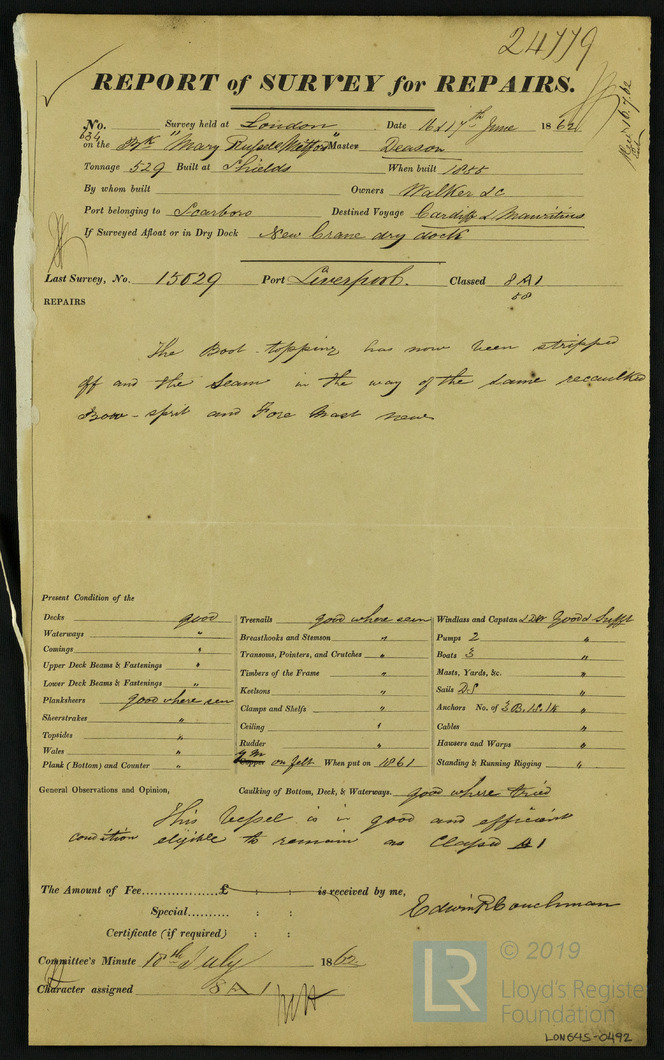 24779
REPORT of SURVEY for REPAIRS.
No. 634 Survey held at London Date 16 & 17th June 1862
on the Bk "Mary Russell Mitford" Master Deason
Tonnage 529 Built at Shields When built 1855
By whom built Owners Walker & C
Port belonging to Scarboro Destined Voyage Cardiff & Mauritius
If Surveyed Afloat or in Dry Dock New Crane dry dock
Last Survey, No. 15029 Port Liverpool. Classed 8 A 1
58
REPAIRS
The Boot-topping has now been stripped
off and the Seams in the way of the same recaulked
Bow-sprit and Fore Mast new
Present Condition of the
Decks good
Waterways "
Comings "
Upper Deck Beams & Fastenings "
Lower Deck Beams & Fastenings "
Planksheers good where seen
Sheerstrakes "
Topsides "
Wales "
Plank (Bottom) and Counter "
Treenails good where seen
Breasthooks and Stemson "
Transoms, Pointers, and Crutches "
Timbers of the Frame "
Keelsons "
Clamps and Shelfs "
Ceiling "
Rudder "
Y M Copper on felt When put on 1861
Windlass and Capstan good & Sufft
Pumps 2 "
Boats 3 "
Masts, Yards, &c. "
Sails D.S "
Anchors No. of 3 B. 1 S. 1 K "
Cables "
Hawsers and Warps "
Standing & Running Rigging "
General Observations and Opinion, Caulking of Bottom, Deck, & Waterways. good where tried
This Vessel is in good and efficient
condition eligible to remain as Classed A 1
The Amount of Fee £ : : is received by me,
Special : :
Certificate (if required) : :
Edwin R Couchman
Committee's Minute 18th July 1862
Character assigned 8 A 1
LR
© 2019
Lloyd's Register
Foundation
LON645-0492